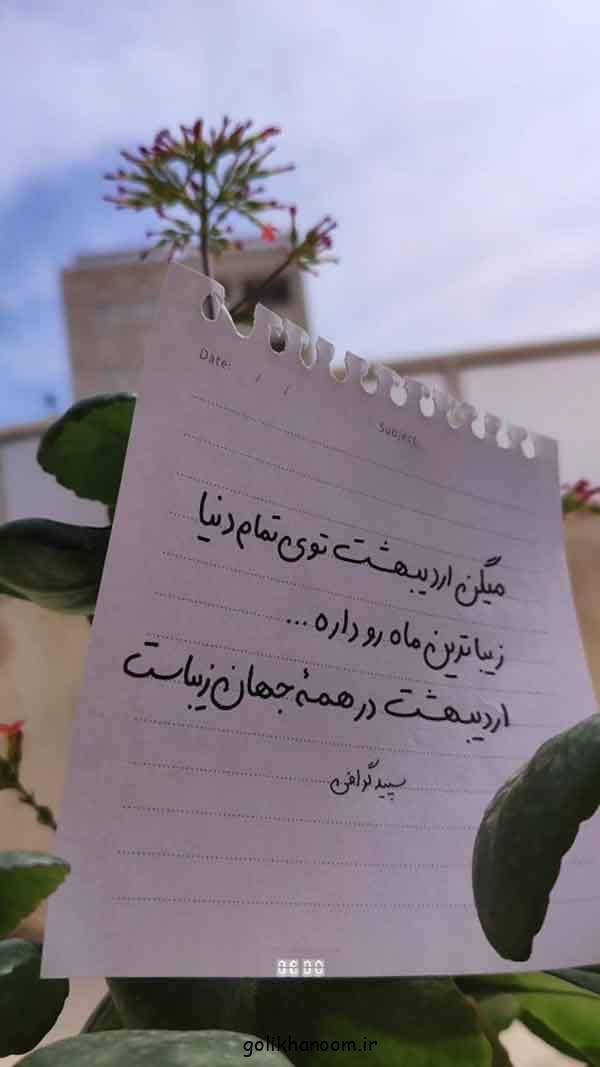 Date: / /
Subject:
میگن اردیبهشت توی تمام دنیا
زیباترین ماه رو داره...
اردیبهشت در همهٔ جهان زیباست
سپیدگرافی
06:00
golikhanoom.ir